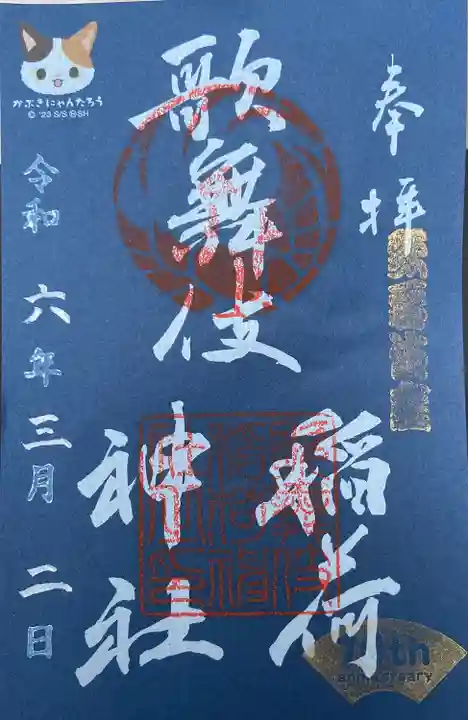 奉拝
歌舞伎
稲荷
神社
令和 六年 三月 二日
かぶきにゃんたろう
© '23 S/S ©SH
11th
anniversary